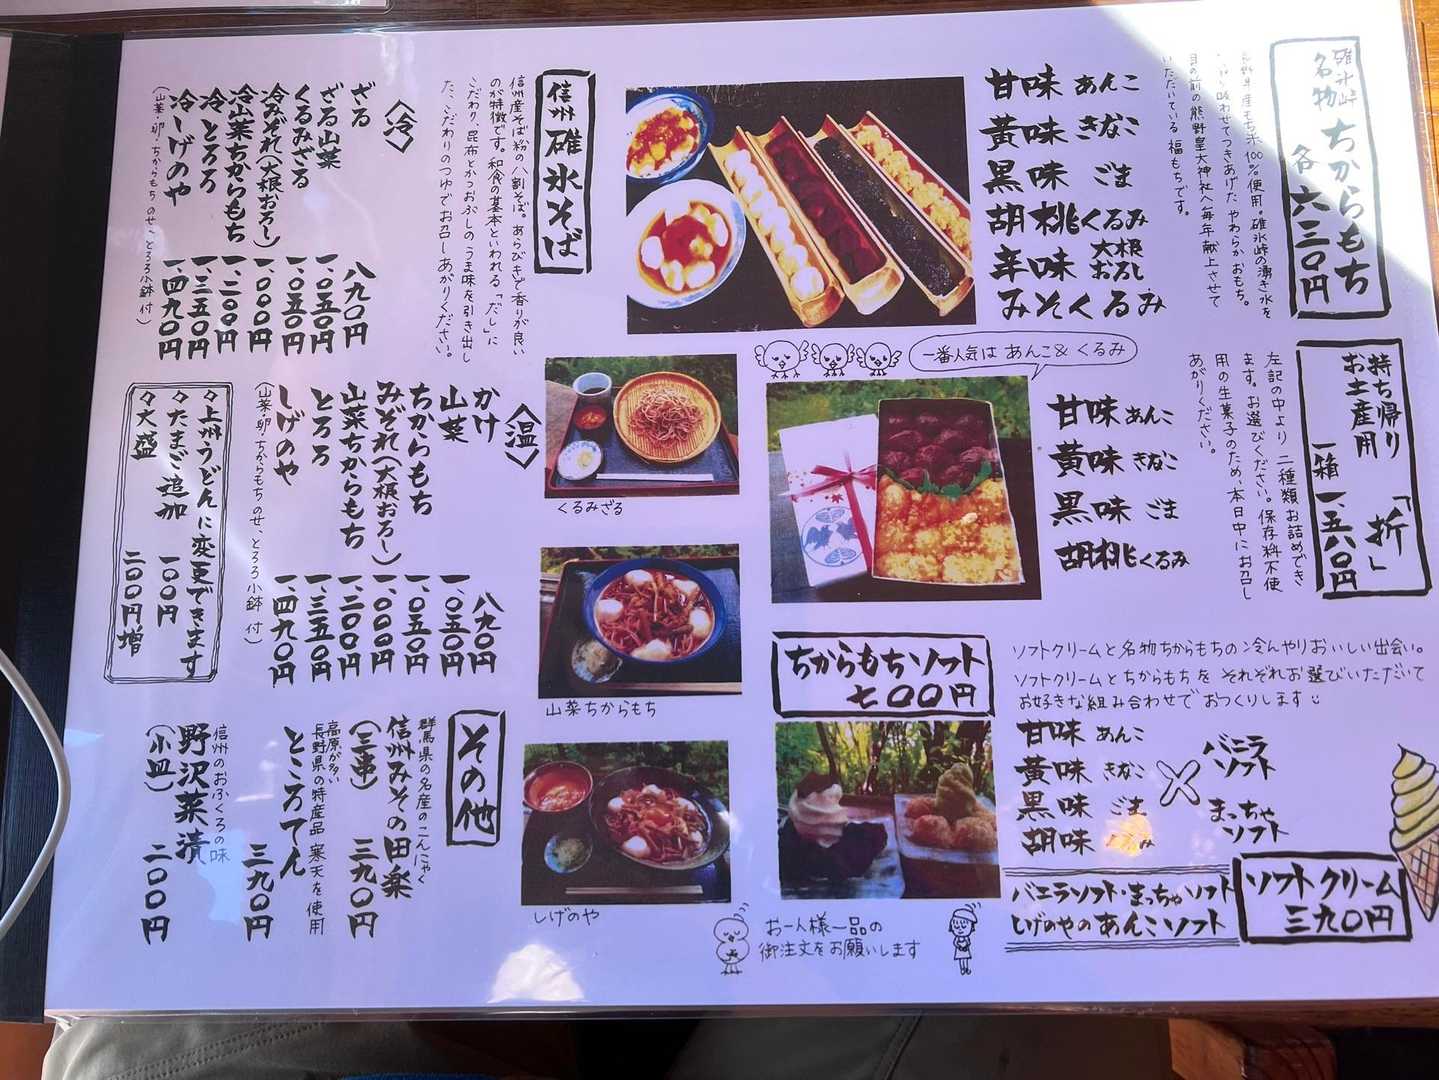 碓氷峠
名物 ちからもち
各 六三〇円
もち米100%使用。碓氷峠の湧き水を
味わせてつきあげた やわらかおもち。
目の前の熊野皇大神社へ毎年献上させて
いただいている 福もちです。
甘味 あんこ
黄味 きなこ
黒味 ごま
胡桃くるみ
辛味 大根おろし
みそくるみ
一番人気は あんこ&くるみ
持ち帰り
お土産用 「折」
一箱 一、五六〇円
左記の中より 二種類お詰めでき
ます。お選びください。保存料不使
用の生菓子のため、本日中にお召し
あがりください。
甘味 あんこ
黄味 きなこ
黒味 ごま
胡桃くるみ
ちからもちソフト
七〇〇円
ソフトクリームと名物ちからもちの冷んやりおいしい出会い。
ソフトクリームとちからもちを それぞれお選びいただいて
お好きな組み合わせで おつくりします
甘味 あんこ
黄味 きなこ
黒味 ごま
胡味 くるみ
×
バニラ
ソフト
まっちゃ
ソフト
バニラソフト・まっちゃソフト
しげのやのあんこソフト
ソフトクリーム
三九〇円
お一人様一品の
御注文をお願いします
信州 碓氷そば
信州産そば粉の八割そば。あらびきで香りが良い
のが特徴です。和食の基本といわれる「だし」に
こだわり、昆布とかつおぶしのうま味を引き出し
た、こだわりのつゆでお召しあがりください。
〈冷〉
ざる 八九〇円
ざる山菜 一、〇五〇円
くるみざる 一、〇五〇円
冷みぞれ(大根おろし) 一、〇〇〇円
冷山菜ちからもち 一、二〇〇円
冷とろろ 一、三五〇円
冷しげのや 一、四九〇円
(山菜・卵・ちからもちのせ、とろろ小鉢付)
〈温〉
かけ 八九〇円
山菜 一、〇五〇円
ちからもち 一、〇五〇円
みぞれ(大根おろし) 一、〇〇〇円
山菜ちからもち 一、二〇〇円
とろろ 一、三五〇円
しげのや 一、四九〇円
(山菜・卵・ちからもちのせ、とろろ小鉢付)
々上州うどんに変更できます
々たまご追加 一〇〇円
々大盛 二〇〇円増
くるみざる
山菜ちからもち
しげのや
その他
群馬県の名産のこんにゃく
信州みその田楽
(三串) 三九〇円
高原が多い
長野県の特産品 寒天を使用
ところてん 三九〇円
信州のおふくろの味
野沢菜漬
(小皿) 二〇〇円